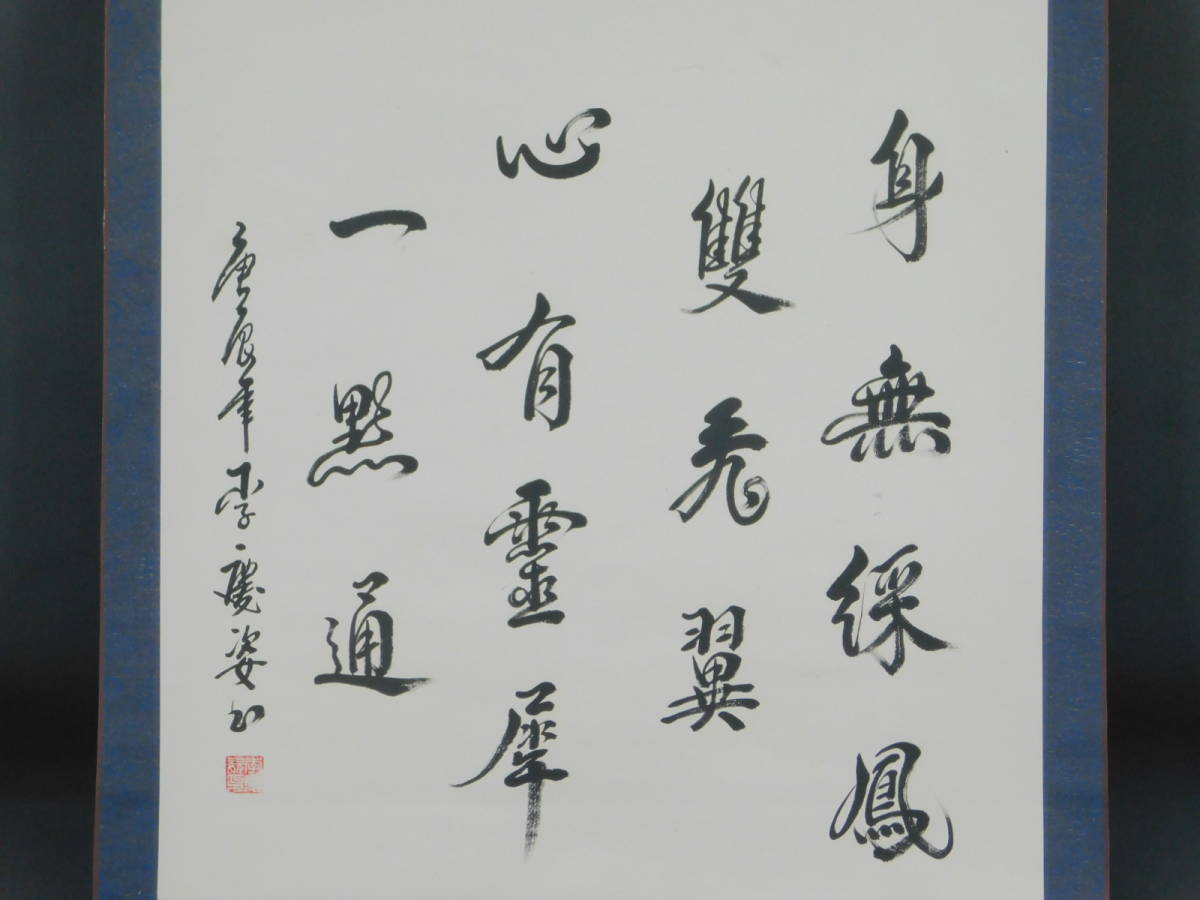 身無綵鳳
雙飛翼
心有靈犀
一點通
庚辰年李慶姿书